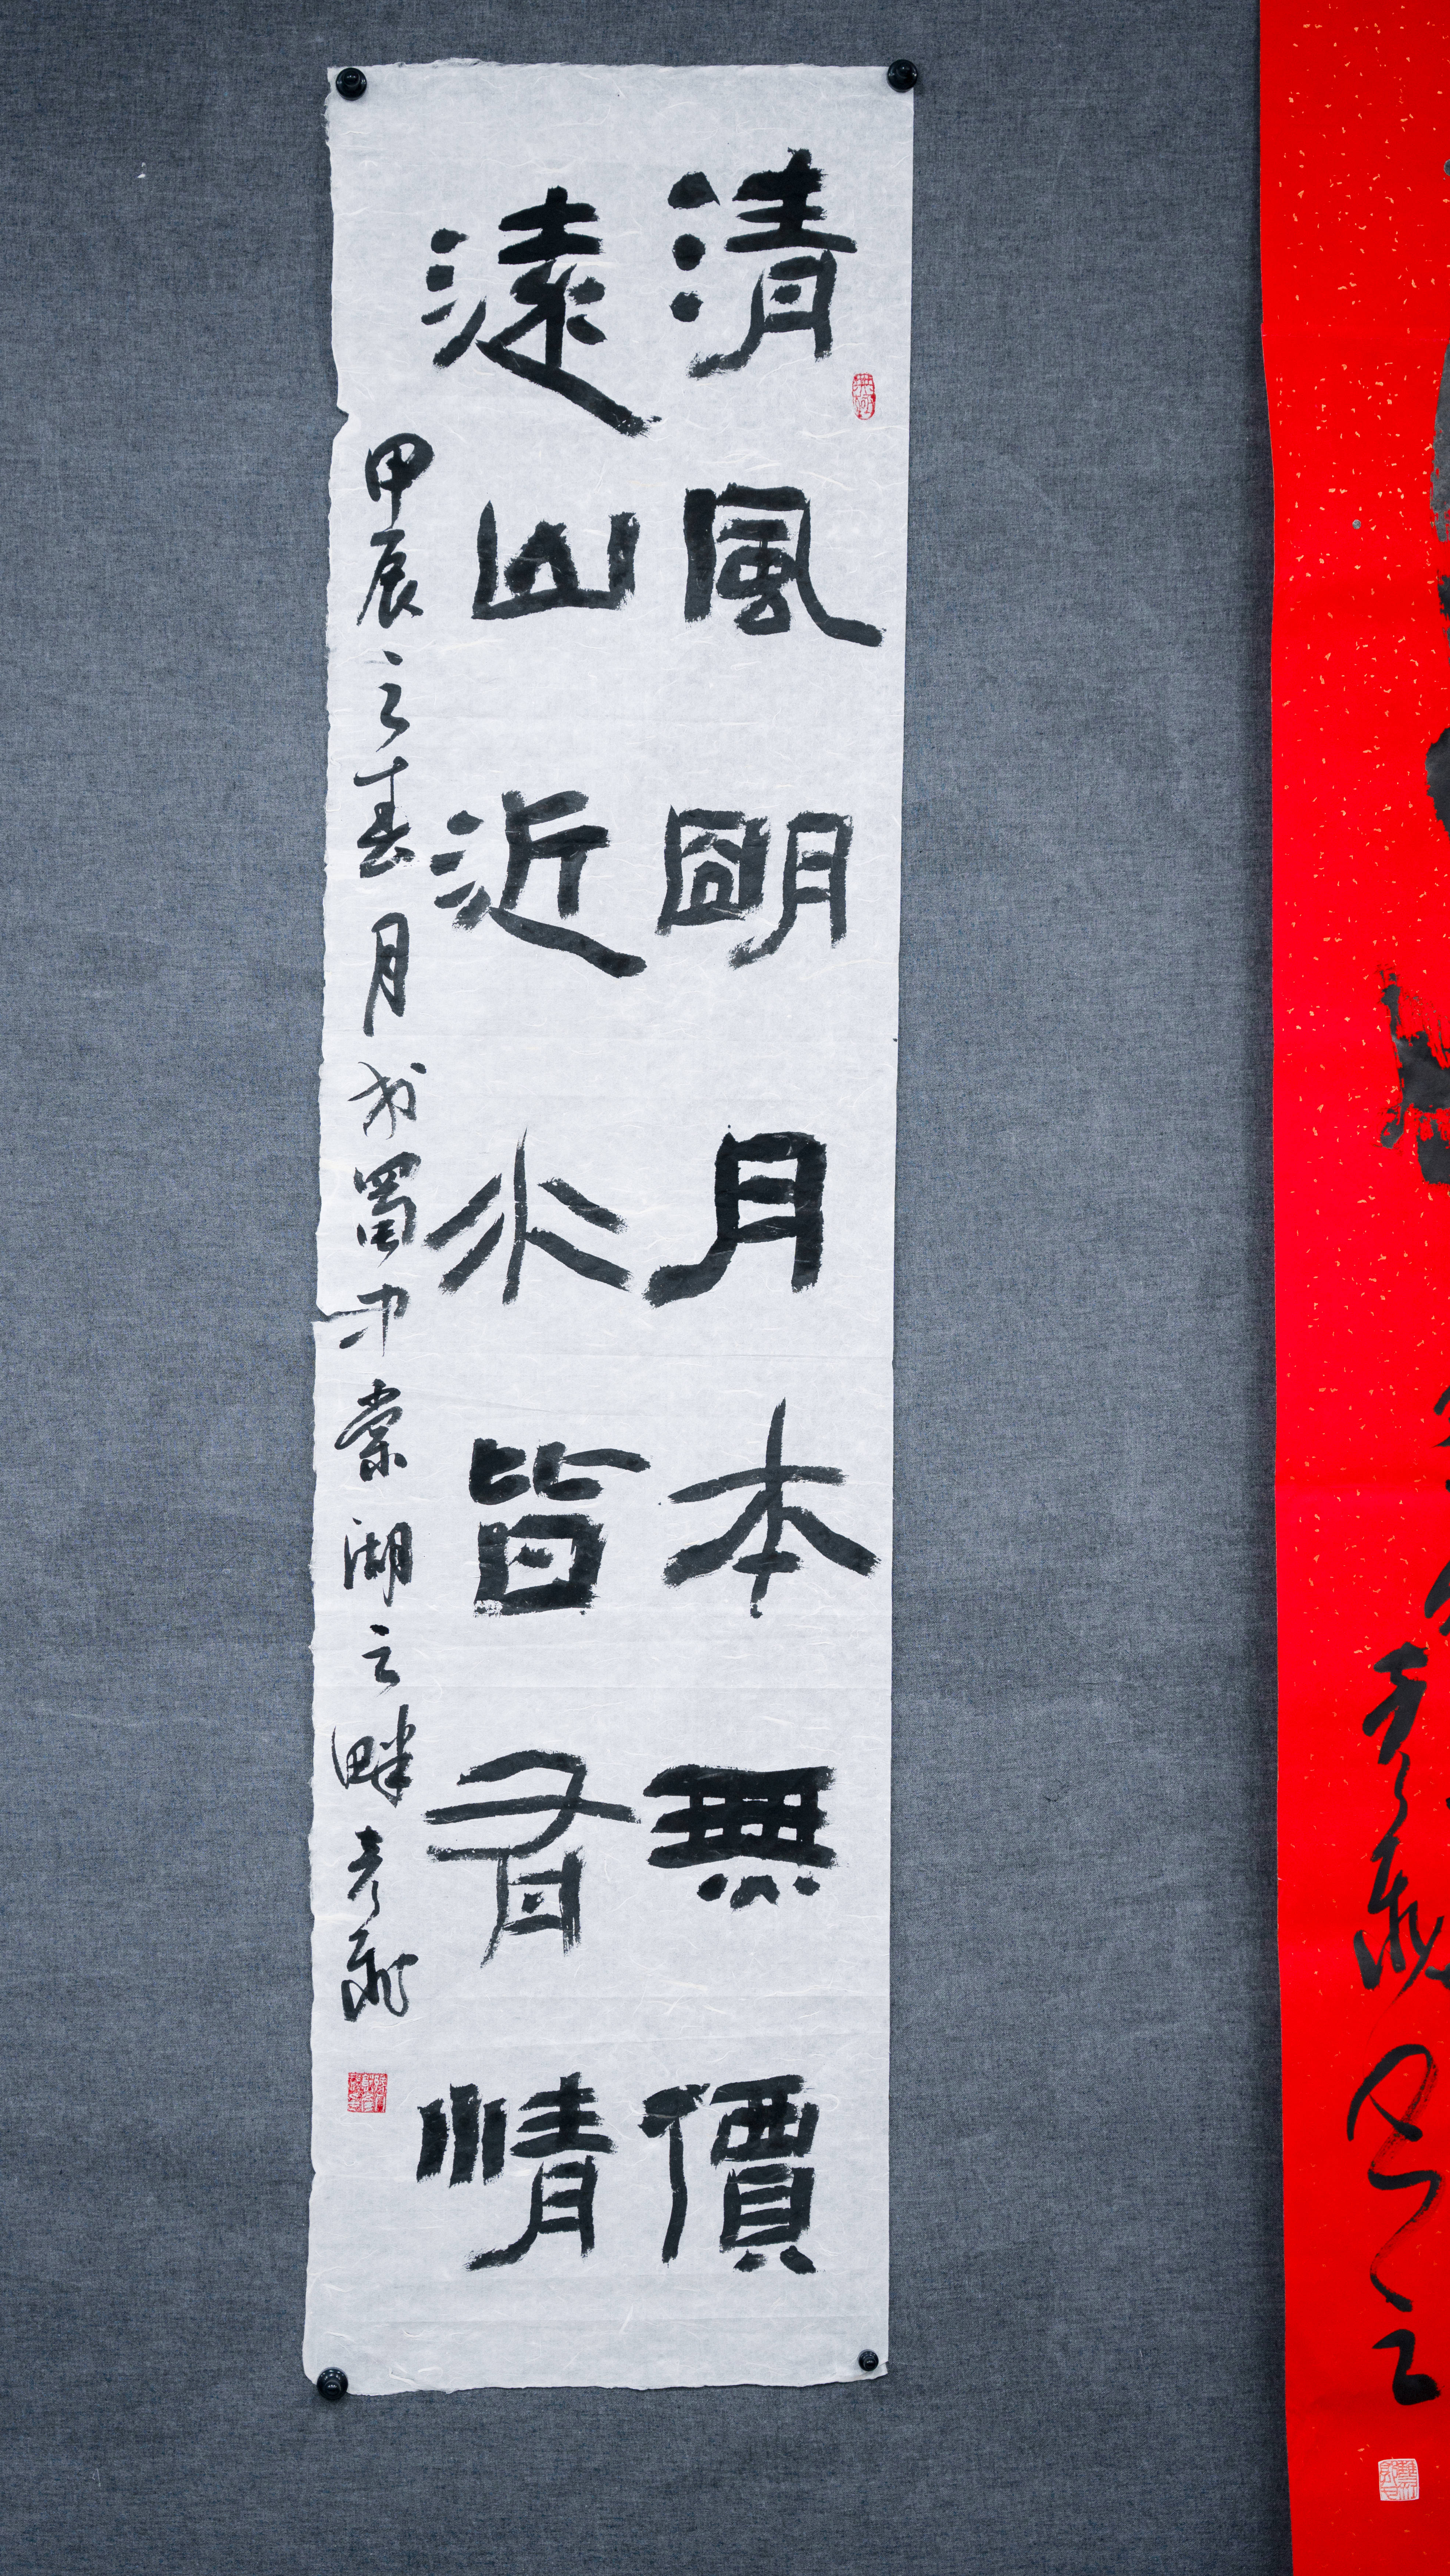 清風朙月本無價
遠山近水皆有情
甲辰之春月於蜀中棠湖之畔彦飛